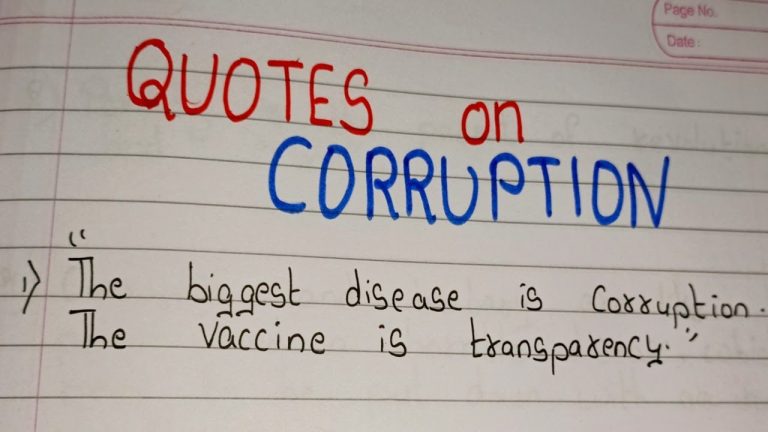 Page No.
Date:
QUOTES on
CORRUPTION
1) "The biggest disease is Corruption.
The Vaccine is transparency."